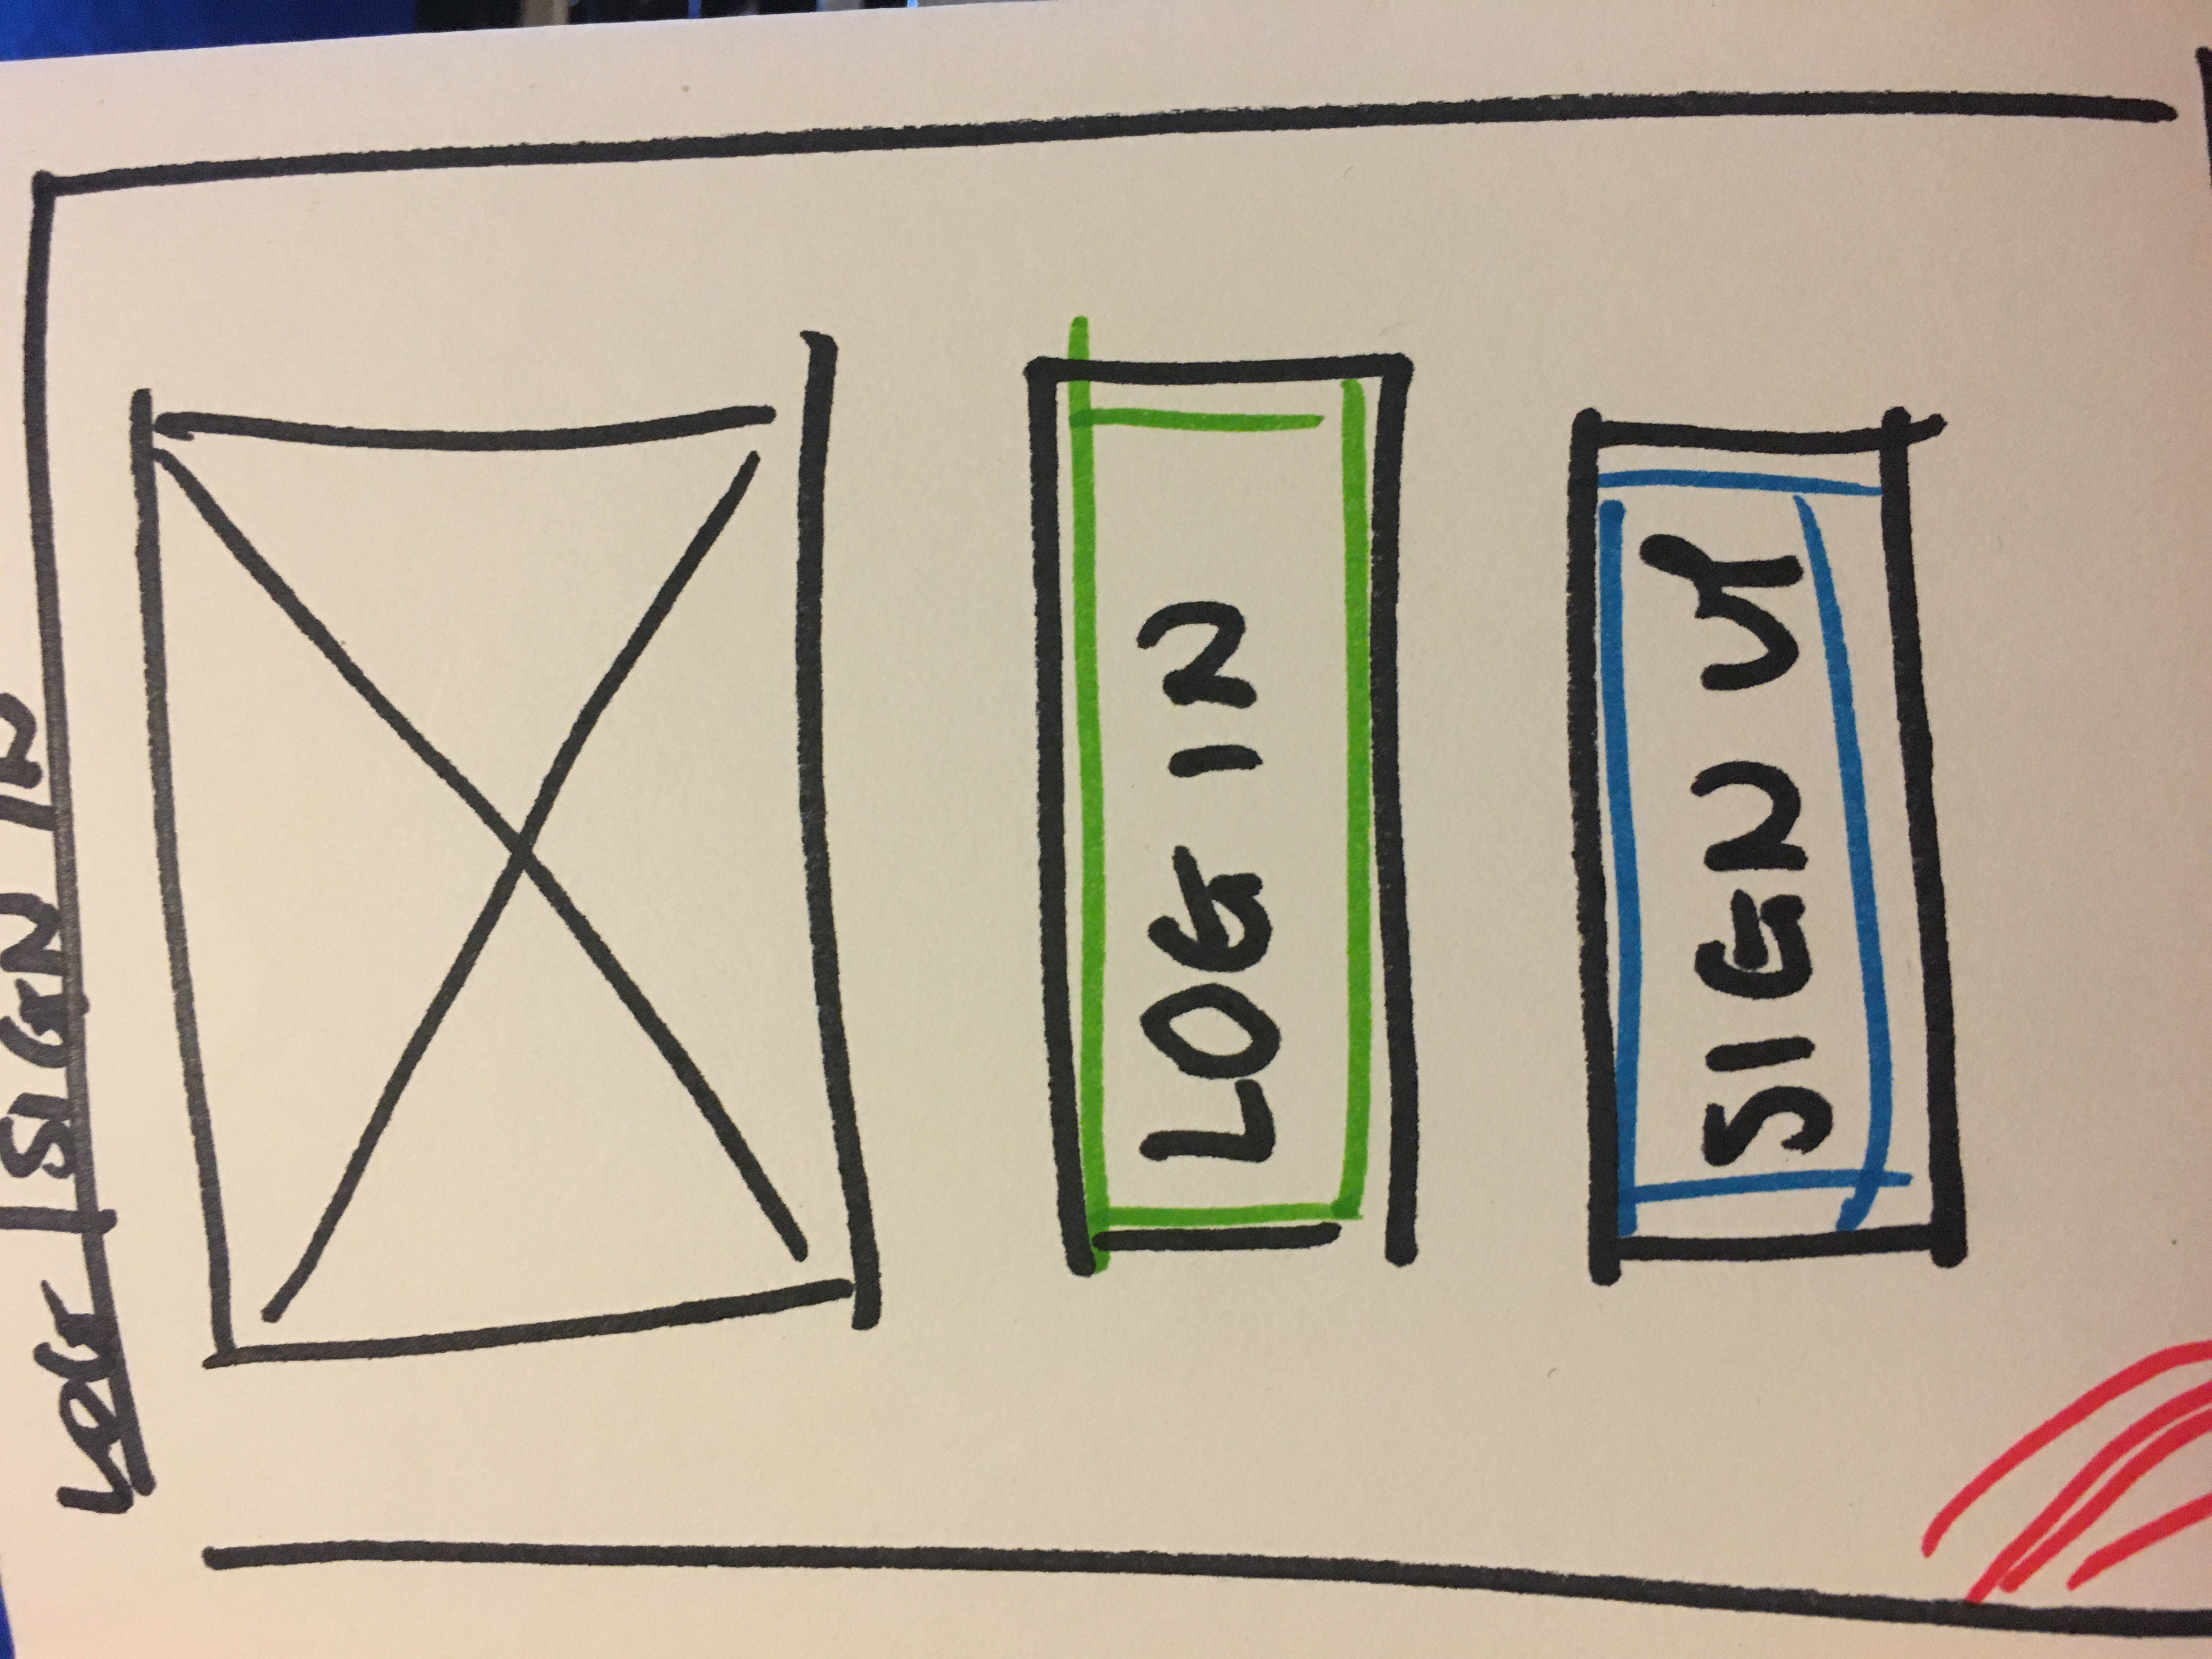 LOG | SIGN IN
LOG IN
SIGN UP